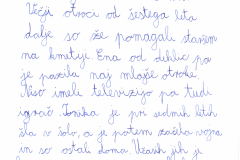 Večji otroci od šestega leta
dalje so že pomagali staršem
na kmetiji. Ena od deklic pa
je pazila naj mlajše otroke.
Niso imeli televizijo pa tudi
igrač. Tonika je pri sedmih letih
šla v šolo, a je potem začela vojna
in so ostali doma. Včasih jih je